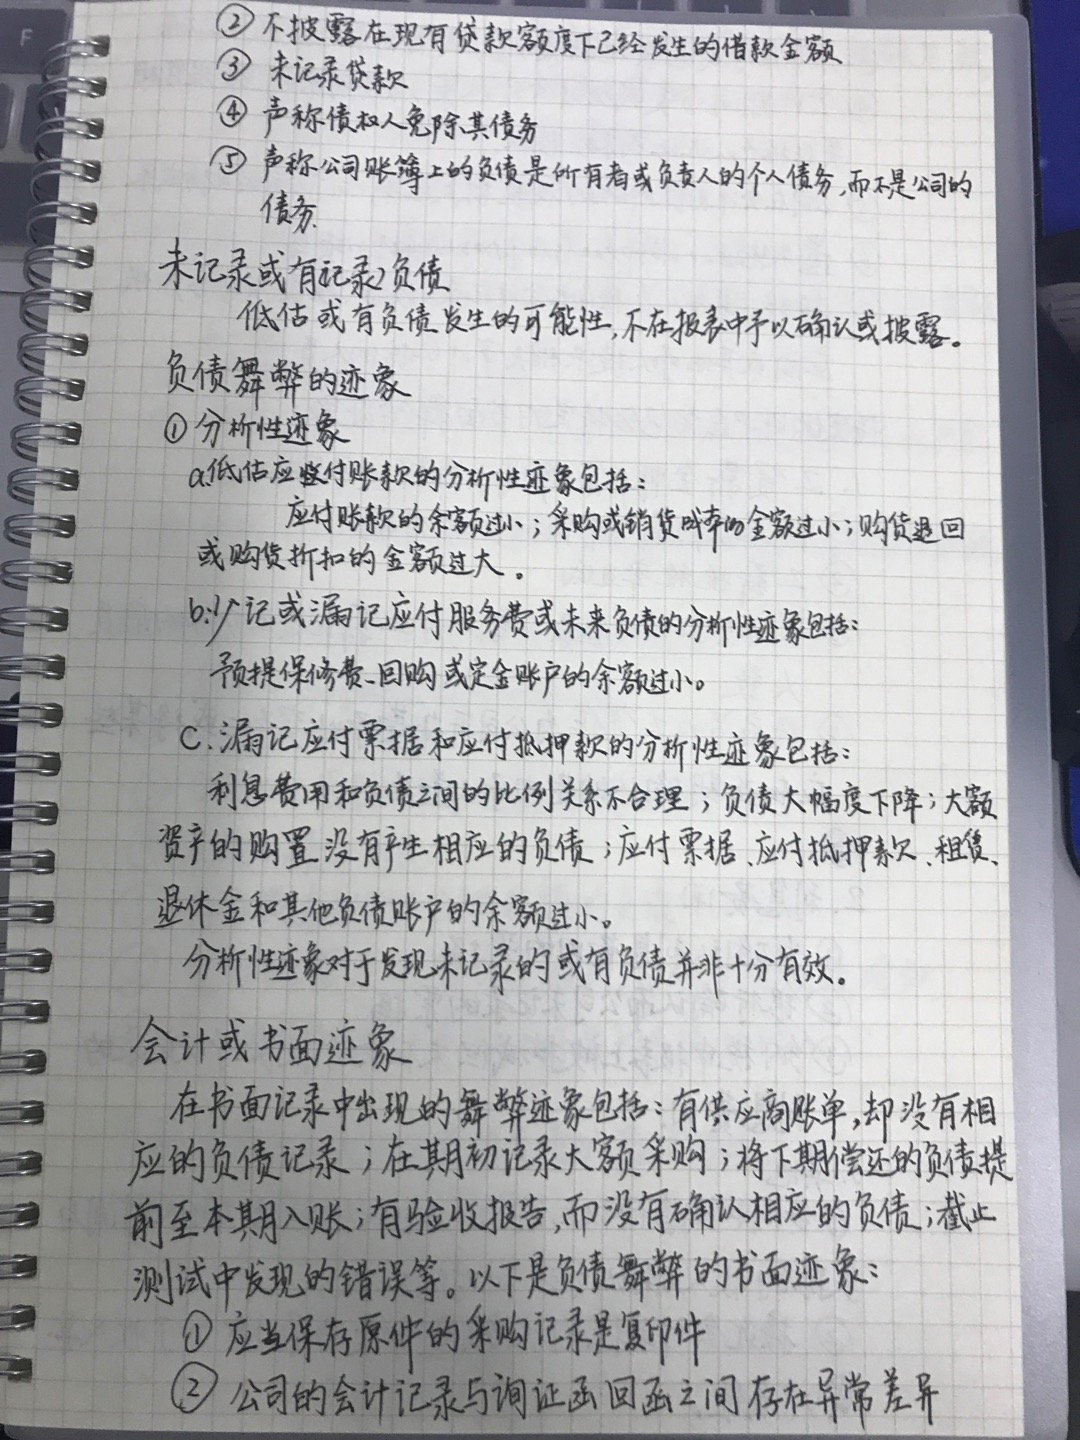 ② 不披露在现有贷款额度下已经发生的借款金额
③ 未记录贷款
④ 声称债权人免除其债务
⑤ 声称公司账簿上的负债是所有者或负责人的个人债务,而不是公司的
债务.
未记录或有记录负债
低估或有负债发生的可能性,不在报表中予以确认或披露。
负债舞弊的迹象
① 分析性迹象
a.低估应付账款的分析性迹象包括:
应付账款的余额过小;采购或销货成本的金额过小;购货退回
或购货折扣的金额过大。
b.少记或漏记应付服务费或未来负债的分析性迹象包括:
预提保修费、回购或定金账户的余额过小。
C.漏记应付票据和应付抵押款的分析性迹象包括:
利息费用和负债之间的比例关系不合理;负债大幅度下降;大额
资产的购置没有产生相应的负债;应付票据、应付抵押款、租赁、
退休金和其他负债账户的余额过小。
分析性迹象对于发现未记录的或有负债并非十分有效。
会计或书面迹象
在书面记录中出现的舞弊迹象包括:有供应商账单,却没有相
应的负债记录;在期初记录大额采购;将下期偿还的负债提
前至本期入账;有验收报告,而没有确认相应的负债;截止
测试中发现的错误等。以下是负债舞弊的书面迹象:
① 应当保存原件的采购记录是复印件
② 公司的会计记录与询证函回函之间存在异常差异